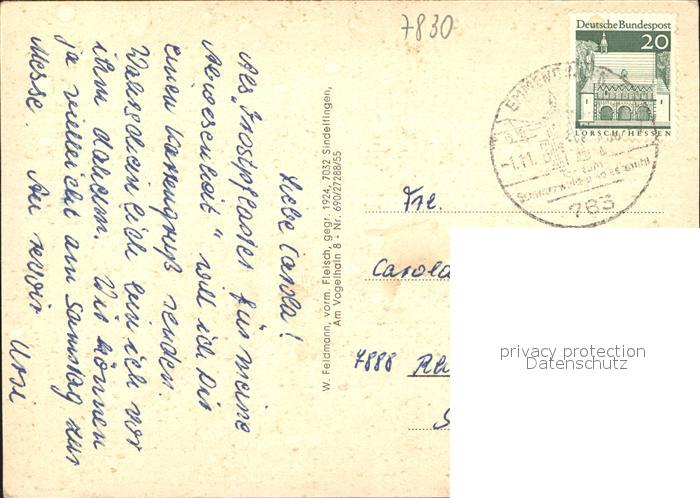 7830
Deutsche Bundespost
20
LORSCH/HESSEN
EMMENDINGEN
-1.11.
783
Liebe Carola!
Als "Trostpflaster für meine
Abwesenheit" will ich Dir
einen Kartengruß senden.
Wahrscheinlich bin ich vor
ihm daheim. Wir können
ja vielleicht am Samstag zur
Messe. Au revoir
Ursi
W. Feldmann, vorm. Fleisch, gegr. 1924, 7032 Sindelfingen,
Am Vogelhain 8 - Nr. 690/27288/55
Frl.
Carola
7888 Rh
privacy protection
Datenschutz